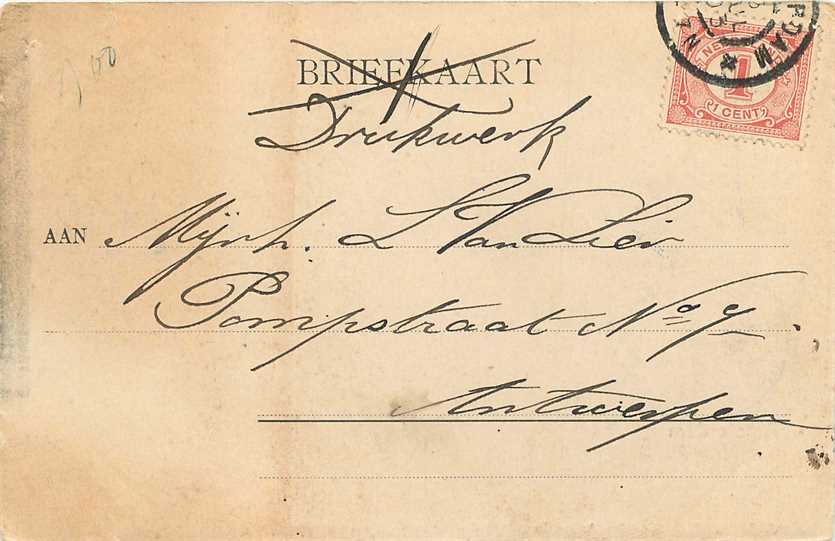 100
BRIEFKAART
Drukwerk
RDAM
NE
1
1 CENT
AAN Mijnh. L Van Lier
Pompstraat No 7
Antwerpen